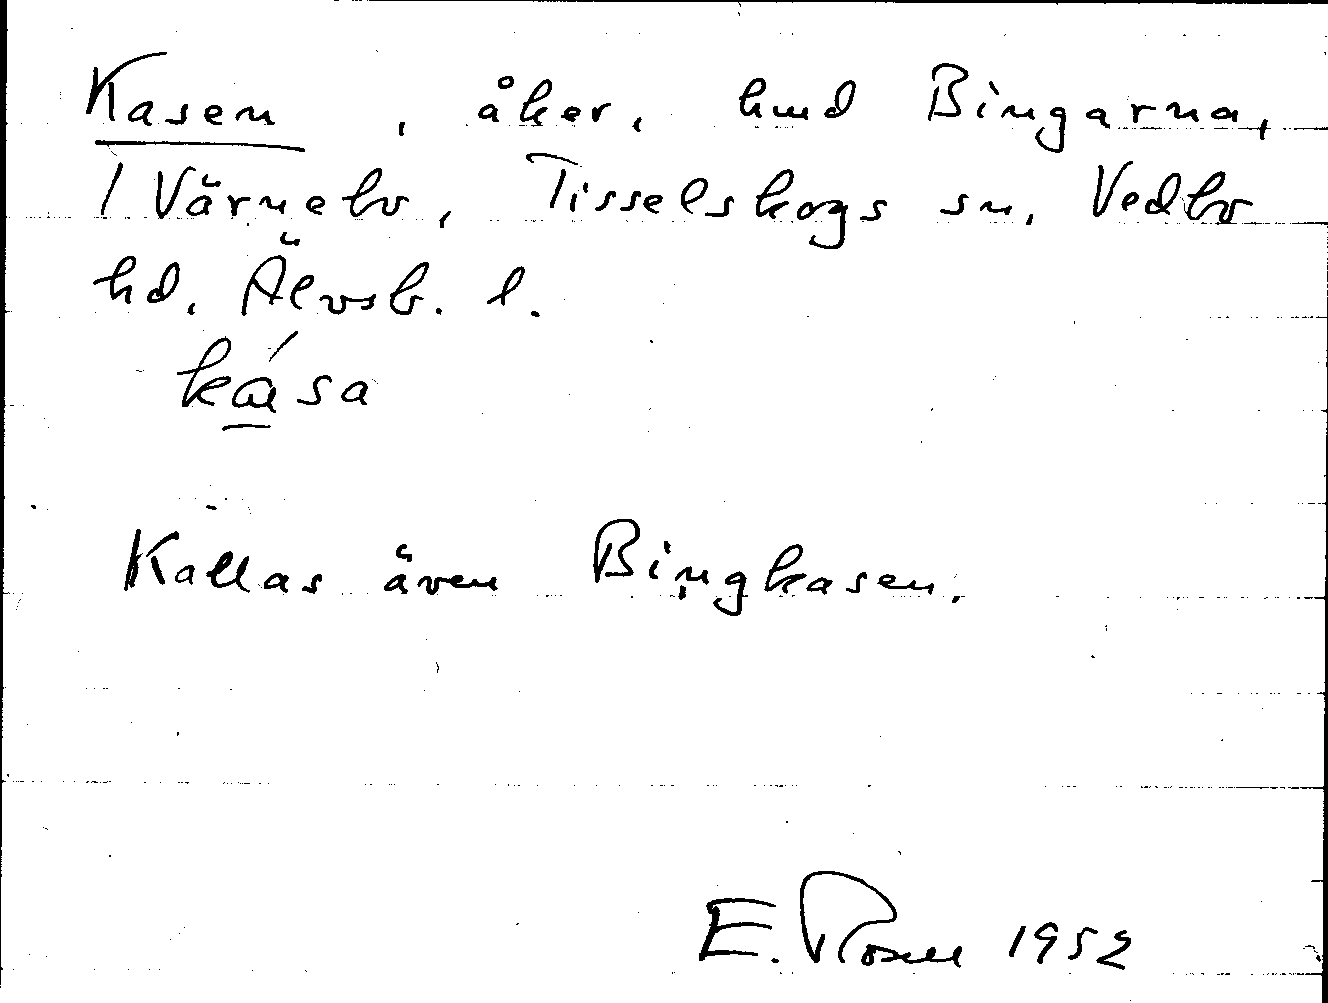 Kasen, åker, hmd Bingarna,
1 Värnebo, Tisselskogs sn, Vedbo
hd. Älvsb. l.
kása
Kallas även Bingkasen.
E. Rosell 1952